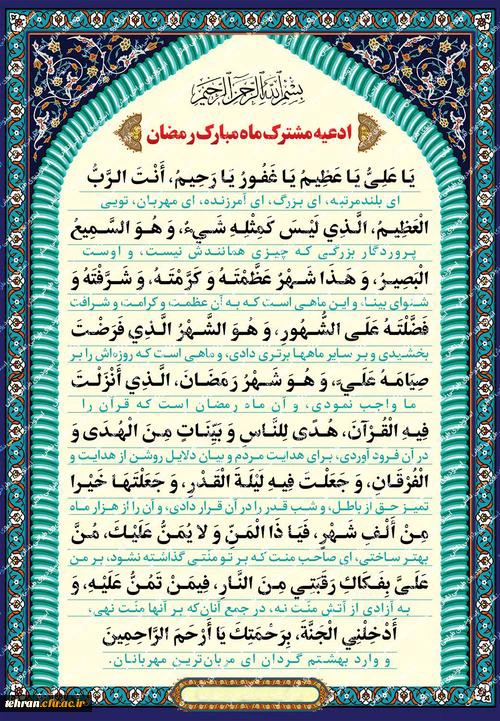 بِسْمِ اللَّهِ الرَّحْمَنِ الرَّحِيمِ
ادعیه مشترک ماه مبارک رمضان
يَا عَلِيُّ يَا عَظِيمُ يَا غَفُورُ يَا رَحِيمُ، أَنْتَ الرَّبُّ
ای بلندمرتبه، ای بزرگ، ای آمرزنده، ای مهربان، تویی
الْعَظِيمُ، الَّذِي لَيْسَ كَمِثْلِهِ شَيْءٌ، وَ هُوَ السَّمِيعُ
پروردگار بزرگی که چیزی همانندش نیست، و اوست
الْبَصِيرُ، وَ هَذَا شَهْرٌ عَظَّمْتَهُ وَ كَرَّمْتَهُ، وَ شَرَّفْتَهُ وَ
شنوای بینا، و این ماهی است که به آن عظمت و کرامت و شرافت
فَضَّلْتَهُ عَلَى الشُّهُورِ، وَ هُوَ الشَّهْرُ الَّذِي فَرَضْتَ
بخشیدی و بر سایر ماهها برتری دادی، و ماهی است که روزه‌اش را بر
صِيَامَهُ عَلَيَّ، وَ هُوَ شَهْرُ رَمَضَانَ، الَّذِي أَنْزَلْتَ
ما واجب نمودی، و آن ماه رمضان است که قرآن را
فِيهِ الْقُرْآنَ، هُدًى لِلنَّاسِ وَ بَيِّنَاتٍ مِنَ الْهُدَى وَ
در آن فرود آوردی، برای هدایت مردم و بیان دلایل روشن از هدایت و
الْفُرْقَانِ، وَ جَعَلْتَ فِيهِ لَيْلَةَ الْقَدْرِ، وَ جَعَلْتَهَا خَيْرا
تمیز حق از باطل، و شب قدر را در آن قرار دادی، و آن را از هزار ماه
مِنْ أَلْفِ شَهْرٍ، فَيَا ذَا الْمَنِّ وَ لا يُمَنُّ عَلَيْكَ، مُنَّ
بهتر ساختی، ای صاحب منت که بر تو منّتی گذاشته نشود، بر من
عَلَيَّ بِفَكَاكِ رَقَبَتِي مِنَ النَّارِ، فِيمَنْ تَمُنُّ عَلَيْهِ، وَ
به آزادی از آتش منّت نه، در جمع آنان‌که بر آنها منّت نهی،
أَدْخِلْنِي الْجَنَّةَ، بِرَحْمَتِكَ يَا أَرْحَمَ الرَّاحِمِينَ
و وارد بهشتم گردان ای مهربان‌ترین مهربانان.
tehran.cfu.ac.ir